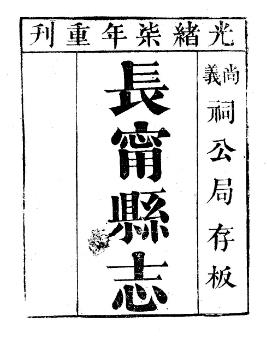 光緒柒年重刊
尚義祠公局存板
長甯縣志